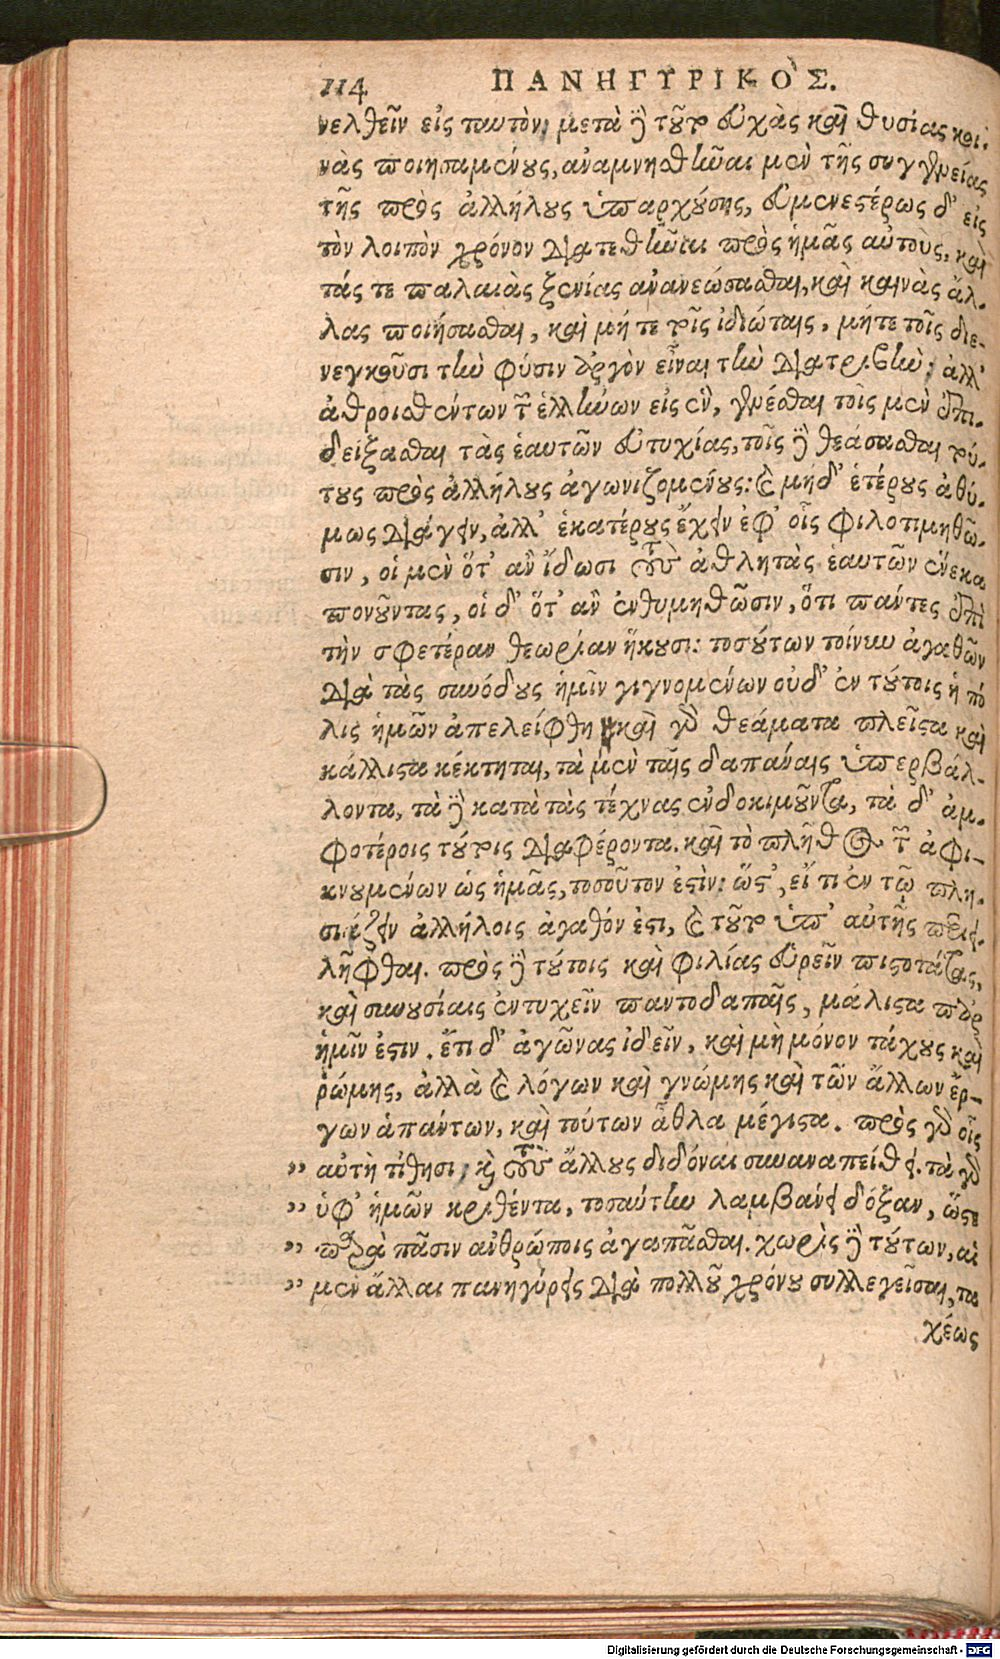 114 ΠΑΝΗΓΥΡΙΚΟ`Σ.
νελθεῖν εἰς ταυτὸν; μετὰ δὲ τοῦτ εὐχὰς καὶ θυσίας κοι-
νὰς ποιησαμένους, ἀναμνησθῆναι μὲν τῆς συγγενείας
τῆς πρὸς ἀλλήλους ὑπαρχούσης, εὐμενεστέρως δ' εἰς
τὸν λοιπὸν χρόνον διατεθῆναι πρὸς ἡμᾶς αὐτοὺς, καὶ
τάς τε παλαιὰς ξενίας ἀνανεώσασθαι, καὶ καινὰς ἄλ-
λας ποιήσασθαι, καὶ μήτε τοῖς ἰδιώταις, μήτε τοῖς διε-
νεγκοῦσι τὴν φύσιν ἀργὸν εἶναι τὴν διατριβὴν; ἀλλ'
ἀθροισθέντων τῶν ἑλλήνων εἰς ἓν, γενέσθαι τοῖς μὲν ἐπι-
δείξασθαι τὰς ἑαυτῶν εὐτυχίας, τοῖς δὲ θεάσασθαι τού-
τους πρὸς ἀλλήλους ἀγωνιζομένους: καὶ μήδ' ἑτέρους ἀθύ-
μως διάγειν, ἀλλ' ἑκατέρους ἔχειν ἐφ' οἷς φιλοτιμηθῶ-
σιν, οἱ μὲν ὅτ' ἂν ἴδωσι τοὺς ἀθλητὰς ἑαυτῶν ἕνεκα
πονοῦντας, οἱ δ' ὅτ' ἂν ἐνθυμηθῶσιν, ὅτι πάντες ἐπὶ
τὴν σφετέραν θεωρίαν ἥκουσι: τοσούτων τοίνυν ἀγαθῶν
διὰ τὰς συνόδους ἡμῖν γιγνομένων οὐδ' ἐν τούτοις ἡ πό
λις ἡμῶν ἀπελείφθη καὶ γὰρ θεάματα πλεῖστα καὶ
κάλλιστα κέκτηται, τὰ μὲν ταῖς δαπάναις ὑπερβάλ-
λοντα, τὰ δὲ κατὰ τὰς τέχνας εὐδοκιμοῦντα, τὰ δ' ἀμ-
φοτέροις τούτοις διαφέροντα. καὶ τὸ πλῆθος τῶν ἀφι-
κνουμένων ὡς ἡμᾶς, τοσοῦτον ἐστὶν: ὥστ', εἴ τι ἐν τῷ πλη-
σιάζειν ἀλλήλοις ἀγαθόν ἐστι, καὶ τοῦτ ὑπ' αὐτῆς περιει-
λῆφθαι. πρὸς δὲ τούτοις καὶ φιλίας εὑρεῖν πιστοτάτας,
καὶ συνουσίαις ἐντυχεῖν παντοδαπαῖς, μάλιστα παρ
ἡμῖν ἐστιν. ἔτι δ' ἀγῶνας ἰδεῖν, καὶ μὴ μόνον τάχους καὶ
ῥώμης, ἀλλὰ καὶ λόγων καὶ γνώμης καὶ τῶν ἄλλων ἔρ-
γων ἁπάντων, καὶ τούτων ἆθλα μέγιστα. πρὸς γὰρ οἷς
„ αὐτὴ τίθησι, καὶ τοὺς ἄλλους διδόναι συναναπείθει. τὰ γὰρ
„ ὑφ' ἡμῶν κριθέντα, τοσαύτην λαμβάνει δόξαν, ὥστε
„ παρὰ πᾶσιν ἀνθρώποις ἀγαπᾶσθαι. χωρὶς δὲ τούτων, αἱ
„ μὲν ἄλλαι πανηγύρεις διὰ πολλοῦ χρόνου συλλεγεῖσαι, τα
χέως
Digitalisierung gefördert durch die Deutsche Forschungsgemeinschaft - DFG